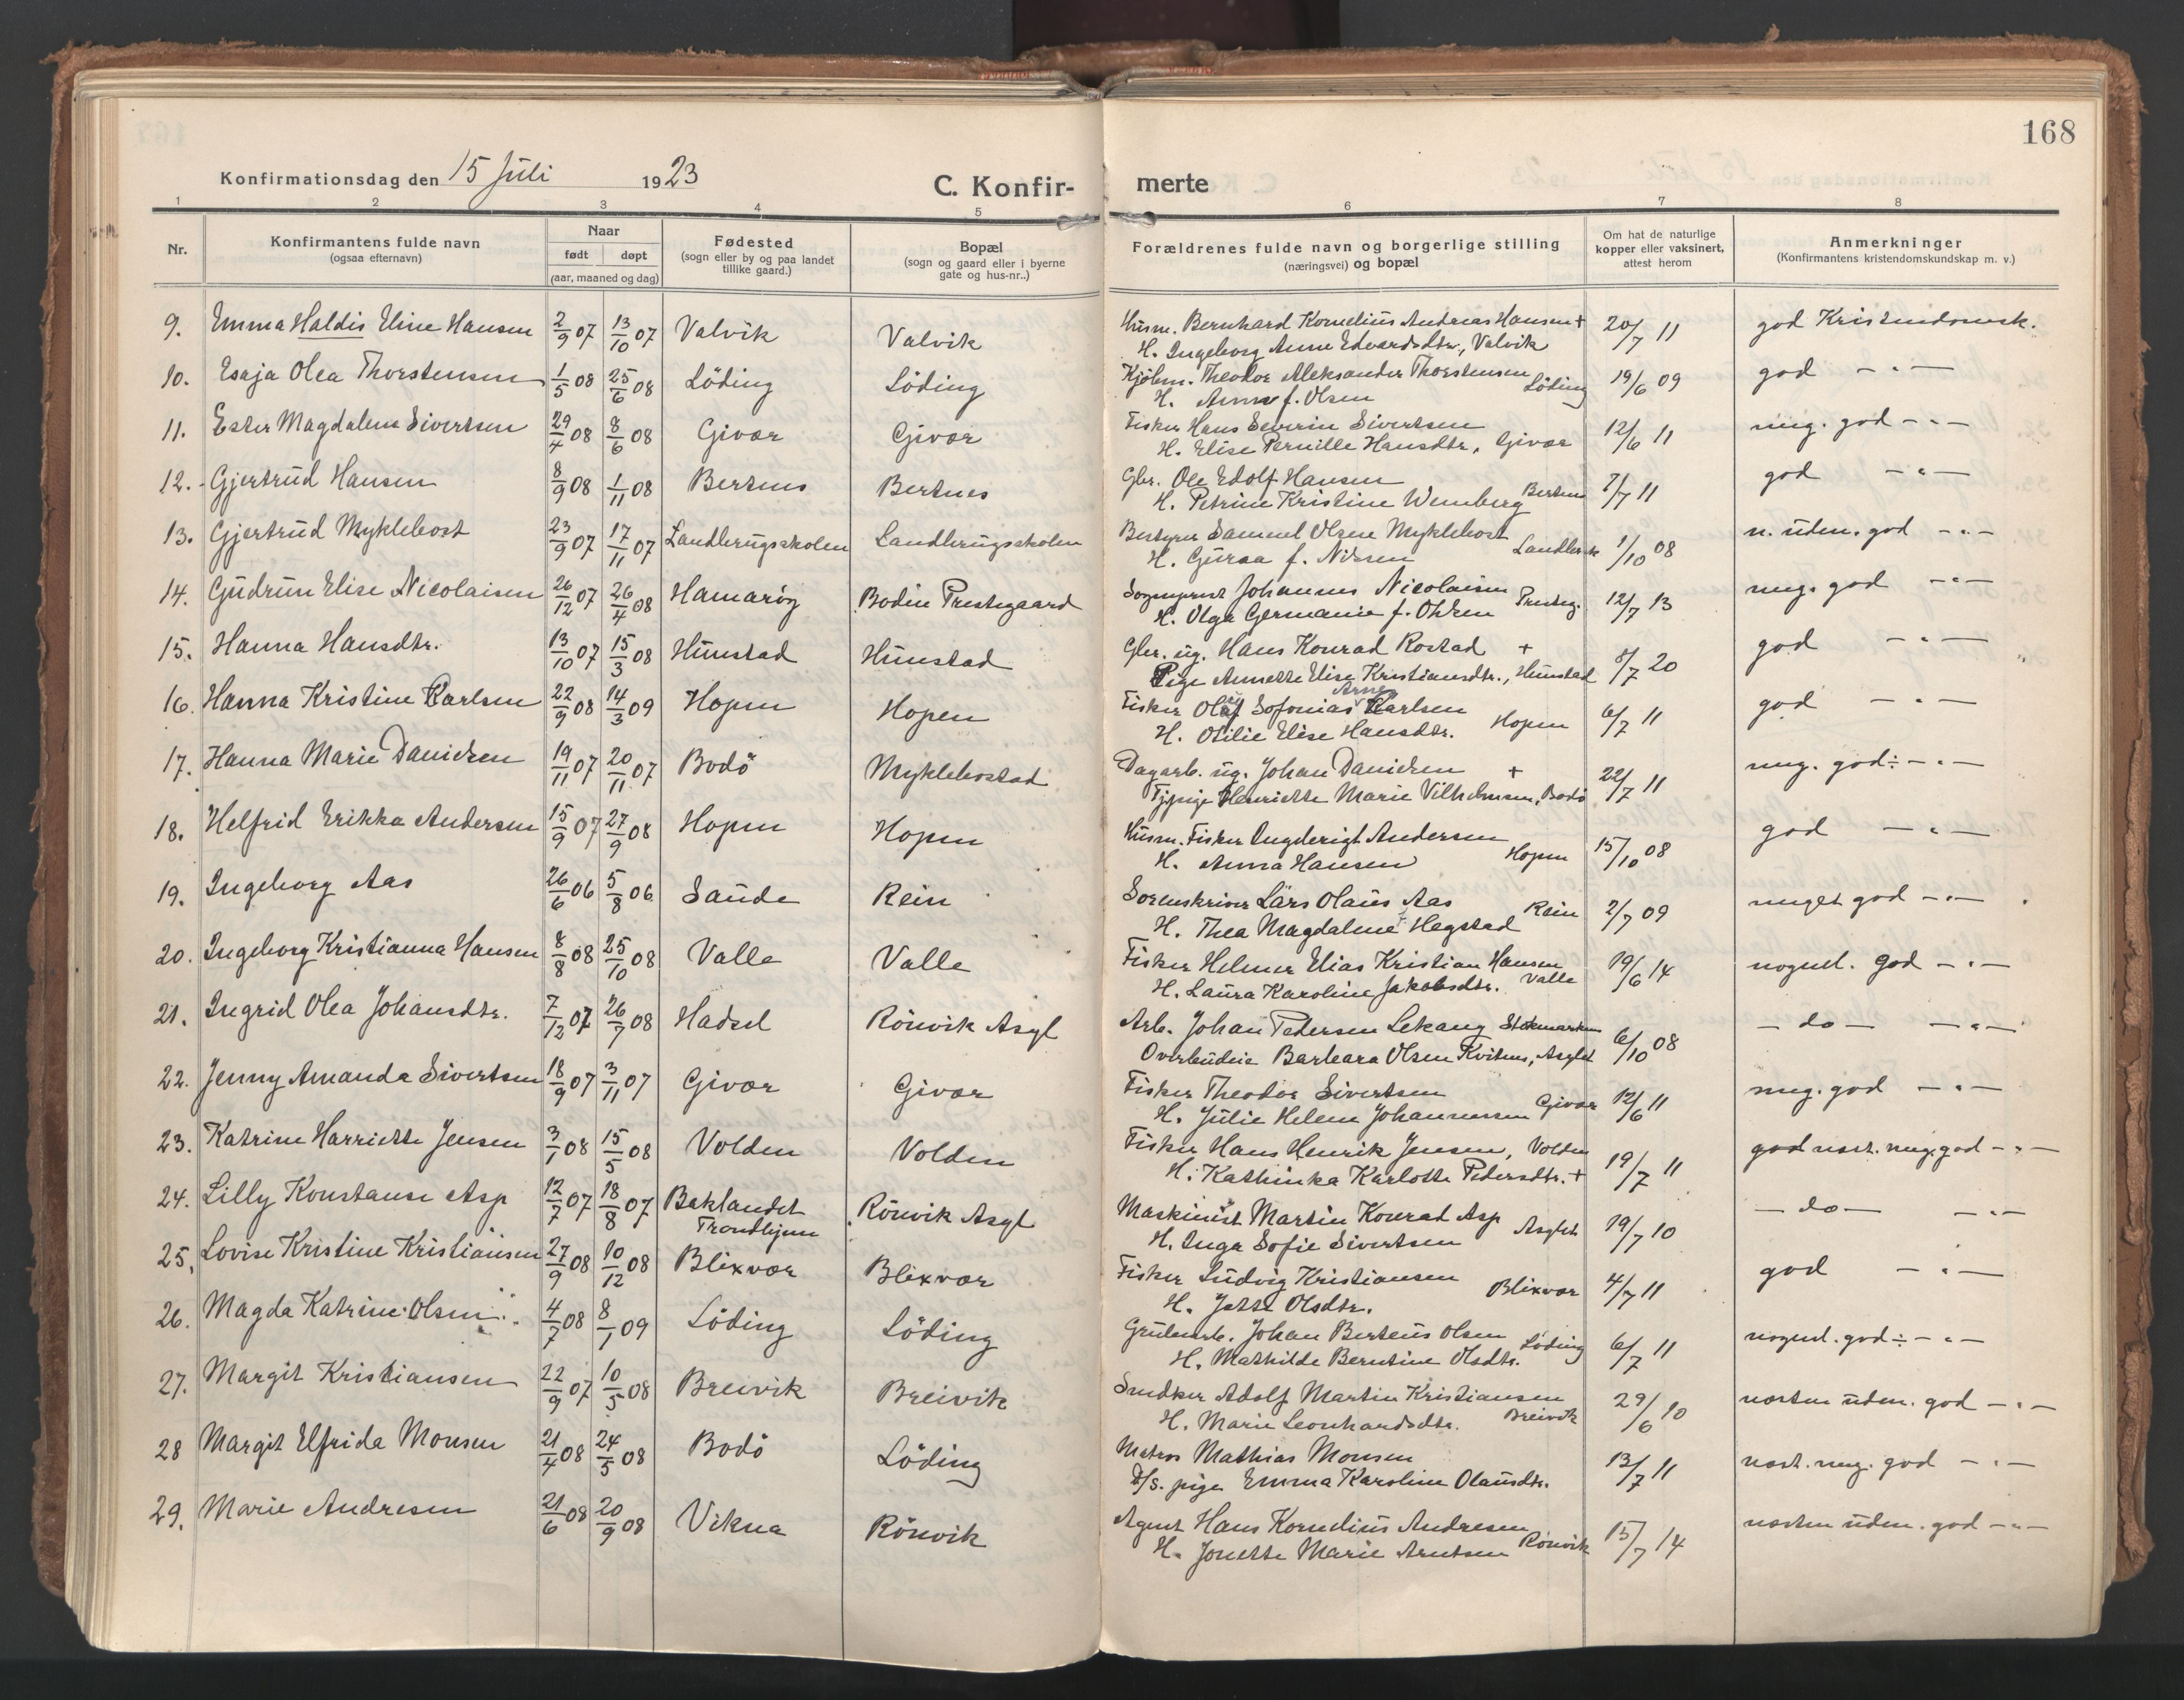 168
Konfirmationsdag den 15 Juli 1923
C. Konfir-
merte
1 2 3 4 5 6 7 8
Nr.
Konfirmantens fulde navn
(ogsaa efternavn)
Naar
født døpt
(aar, maaned og dag)
Fødested
(sogn eller by og paa landet
tillike gaard.)
Bopæl
(sogn og gaard eller i byerne
gate og hus-nr..)
Forældrenes fulde navn og borgerlige stilling
(næringsvei) og bopæl
Om hat de naturlige
kopper eller vaksinert,
attest herom
Anmerkninger
(Konfirmantens kristendomskundskap m. v.)
9. Emma Haldis Eline Hansen 2/9 07 13/10 07 Valvik Valvik Husm. Bernhard Kornelius Andreas Hansen + 20/7 11 god Kristendomsk.
H. Ingeborg Anne Edvardsdtr., Valvik
10. Esaja Olea Thorstensen 1/5 08 25/6 08 Löding Löding Kjøbm. Theodor Aleksander Thorstensen Löding 19/6 09 god - " -
H. Anna f. Olsen
11. Ester Magdalena Sivertsen 29/4 08 8/6 08 Givær Givær Fisker Hans Severin Sivertsen 12/6 11 meg. god - " -
H. Elise Pernille Hansdtr, Givær
12. Gjertrud Hansen 8/9 08 1/11 08 Bertnes Bertnes Gbr. Ole Edolf Hansen Bertnes 7/7 11 god - " -
H. Petrine Kristine Wennberg
13. Gjertrud Myklebost 23/9 07 17/11 07 Landbrugsskolen Landbrugsskolen Bestyrer Samuel Olsen Myklebost Landbrsk 1/10 08 n. uden. god - " -
H. Guraa f. Nilsen
14. Gudrun Elise Nicolaisen 26/12 07 26/4 08 Hamarøy Bodin Prestegaard Sogneprest Johannes Nicolaisen Presteg. 12/7 13 meg. god - " -
H. Olga Germanie f. Olsen
15. Hanna Hansdtr. 13/10 07 15/3 08 Hunstad Hunstad Gbr. ug. Hans Konrad Rostad + 8/7 20 god - " -
Pige Annette Elise Kristiansdtr., Hunstad
16. Hanna Kristine Karlsen 22/9 08 14/3 09 Hopen Hopen Fisker Olaf Sofonias Arne Karlsen Hopen 6/7 11 god - " -
H. Otilie Elise Hansdtr.
17. Hanna Marie Danielsen 19/11 07 20/11 07 Bodö Myklebostad Dagarb. ug. Johan Danielsen + 22/7 11 meg. god ÷ - " -
Tjpige Henriette Marie Vilhelmsen, Bodö
18. Helfrid Erikka Andersen 15/9 07 27/9 08 Hopen Hopen Husm. Fisker Ingderigt Andersen Hopen 15/10 08 god - " -
H. Anna Hansen
19. Ingeborg Aas 26/6 06 5/8 06 Saude Rein Sorenskriver Lars Olaus Aas Rein 2/7 09 meget god - " -
H. Thea Magdalene f. Hegstad
20. Ingeborg Kristianna Hansen 8/8 08 25/10 08 Valle Valle Fisker Helmer Elias Kristian Hansen Valle 19/6 14 nogenl. god - " -
H. Laura Karoline Jakobsdtr.
21. Ingrid Olea Johansdtr. 7/12 07 26/7 08 Hadsel Rönvik Asyl Arb. Johan Pedersen Lekang Stokmarknes 6/10 08 - do - - " -
Overbudeie Barbara Olsen Kvitnes, Asylet
22. Jenny Amanda Sivertsen 18/9 07 3/11 07 Givær Givær Fisker Theodor Sivertsen Givær 12/6 11 meg. god - " -
H. Julie Helene Johannessen
23. Katrine Harriette Jensen 3/1 08 15/5 08 Volden Volden Fisker Hans Henrik Jensen, Volden 19/7 11 god næst. meg. god - " -
H. Kathinka Karlotte Pedersdtr. +
24. Lilly Konstanse Asp 12/7 07 18/8 07 Baklandet Trondhjem Rönvik Asyl Maskinist Martin Konrad Asp Asylet 19/7 10 - do - - " -
H. Inga Sofie Sivertsen
25. Lovise Kristine Kristiansen 27/9 08 10/12 08 Blixvær Blixvær Fisker Ludvig Kristiansen Blixvær 4/7 11 god - " -
H. Jette Olsdtr.
26. Magda Katrine Olsen 4/7 08 8/1 09 Löding Löding Grubearb. Johan Berteus Olsen Löding 6/7 11 nogenl. god ÷ - " -
H. Mathilde Berntine Olsdtr.
27. Margit Kristiansen 22/9 07 10/5 08 Breivik Breivik Snedker Adolf Martin Kristiansen Breivik 29/6 10 næsten uden. god - " -
H. Marie Leonhardsdtr.
28 Margit Elfrida Monsen 21/4 08 24/5 08 Bodö Löding Matros Mathias Monsen 13/7 11 næst. meg. god - " -
D/S. pige Emma Karoline Olausdtr.
29. Marie Andresen 21/6 08 20/9 08 Vikna Rönvik Agent Hans Kornelius Andresen Rönvik 15/7 14 næsten uden. god - " -
H. Jonette Marie Arntsen